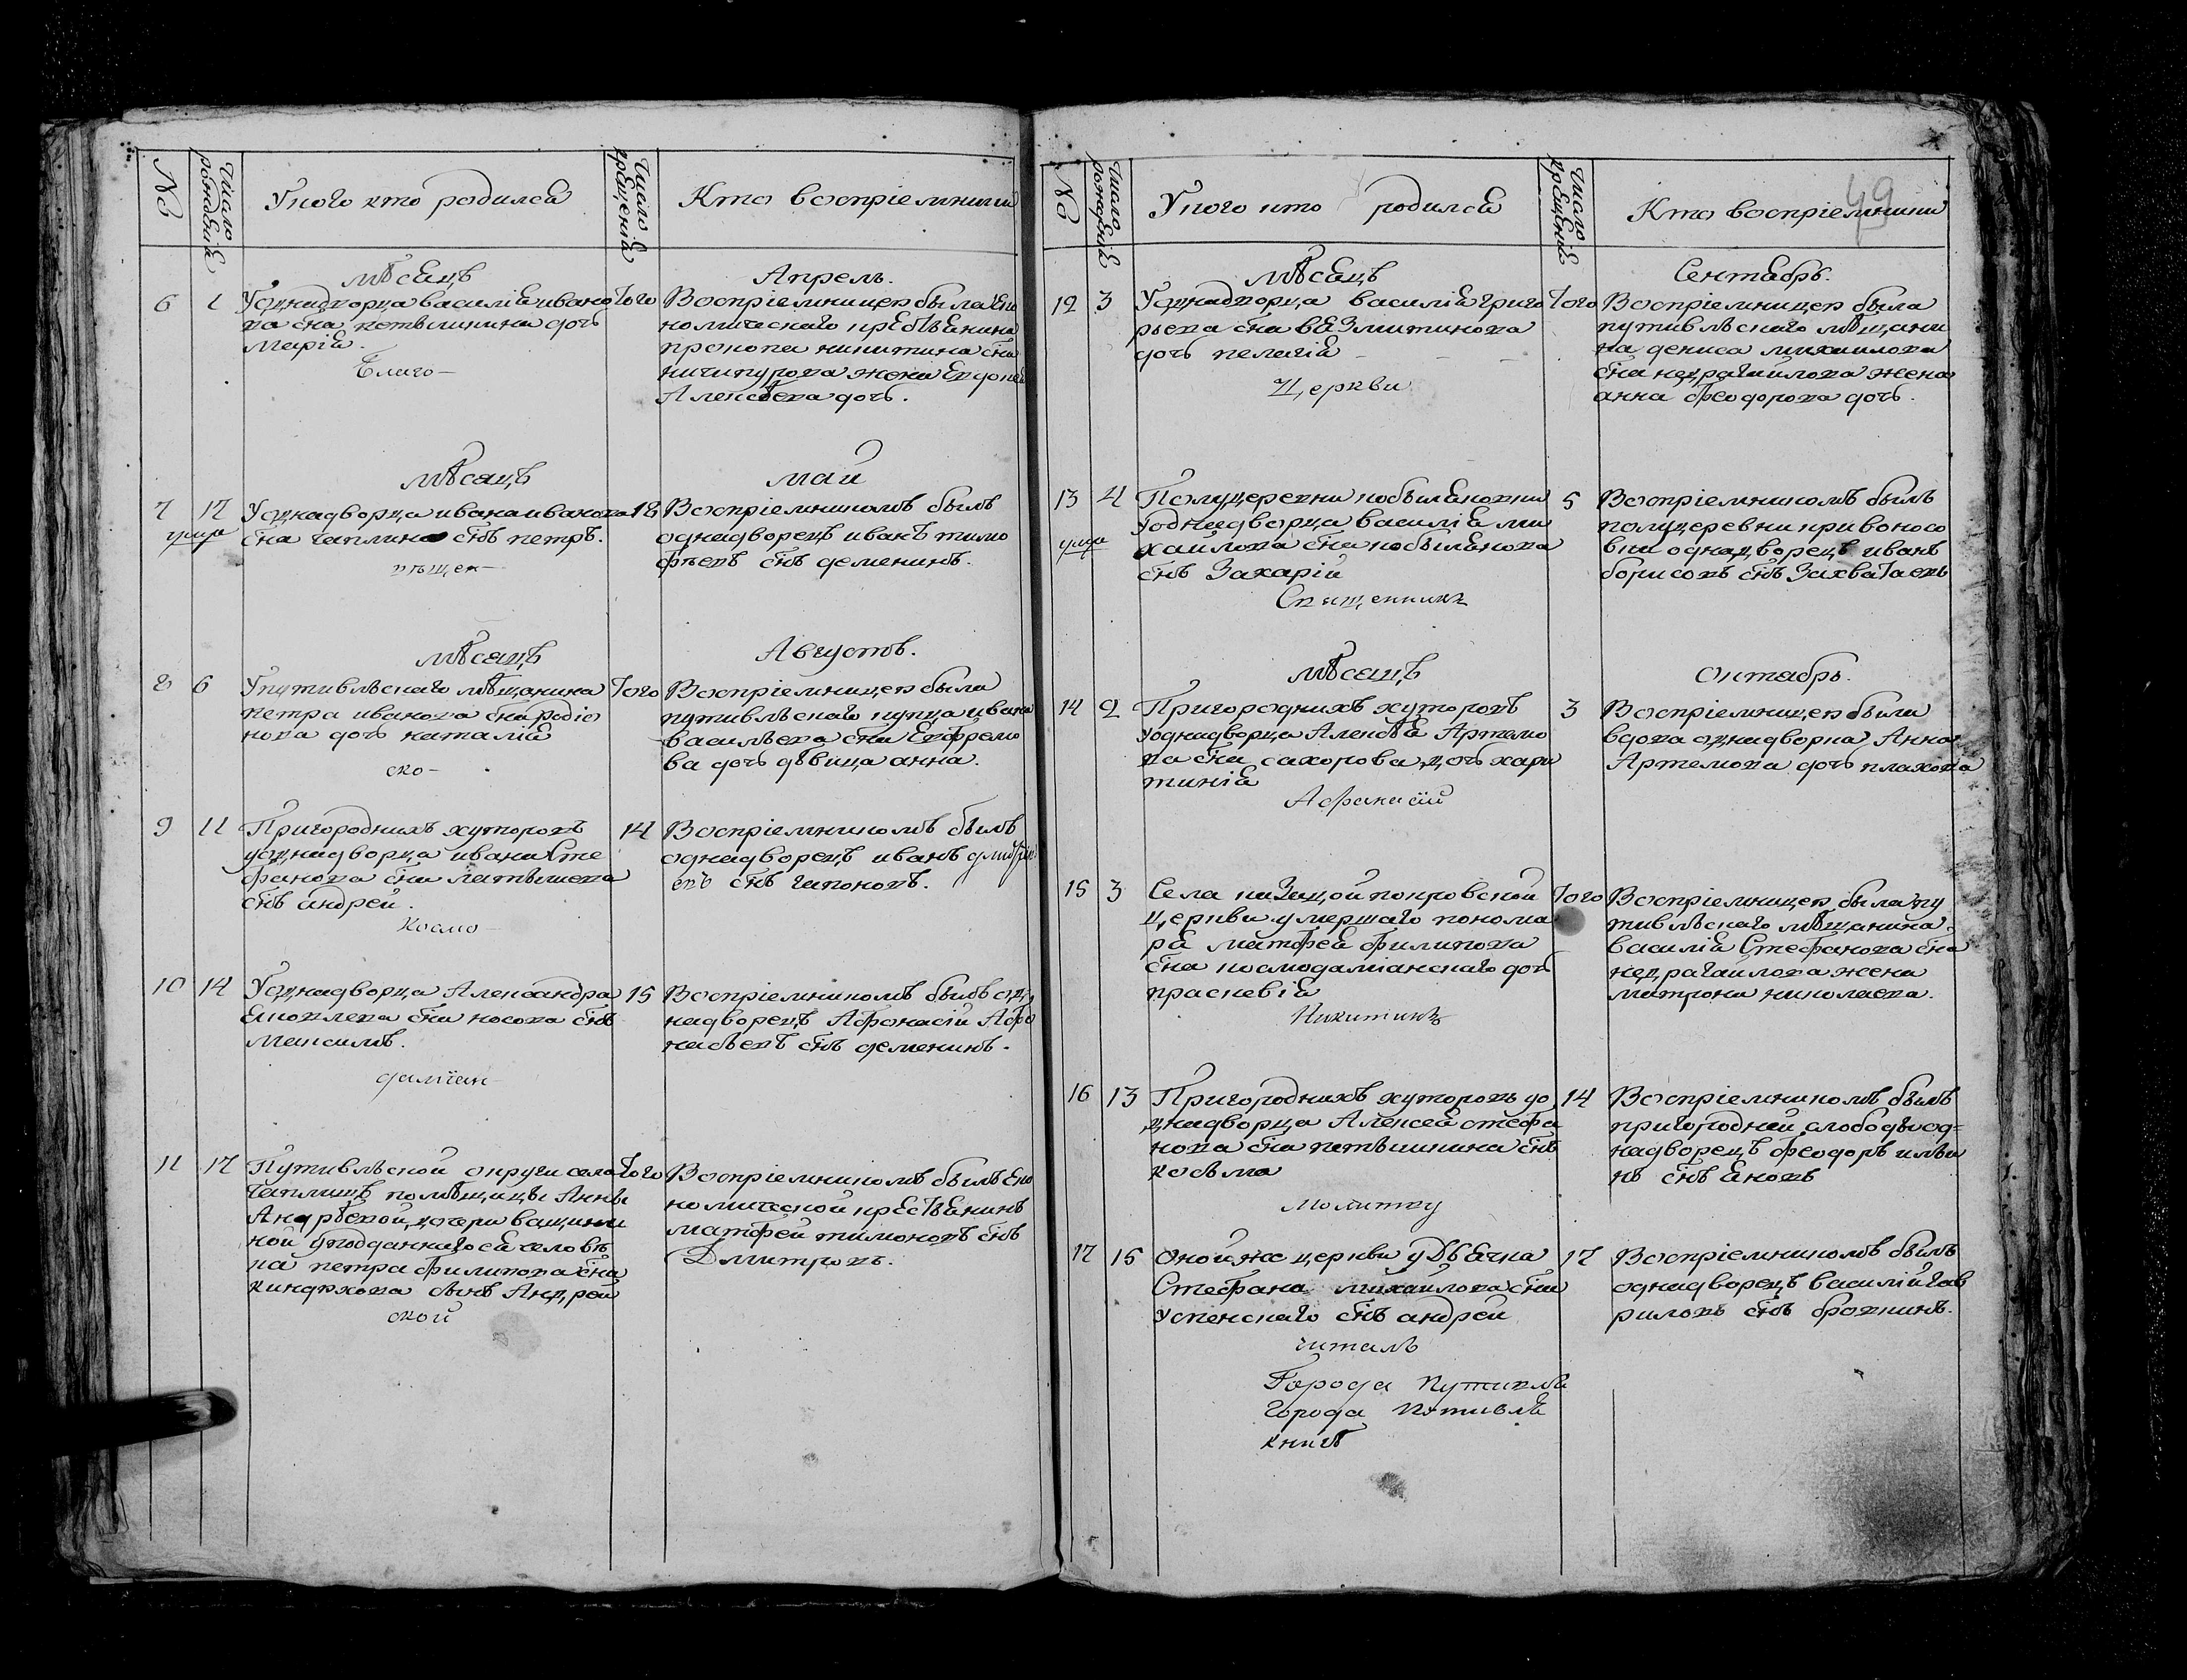 №
Число рождения
У кого кто родился
Число крещения
Кто восприемники
мѣсяцъ
Апрель.
6
1
Уоднадворца василія ивано
ва сна петѣшкина дочь
Марія.
Благо-
Того
Воспріемницею была Эко
номическаго крестьянина
прокопа никитина сна
ничипурова жена Евдокея
Алексѣева дочь.
мѣсяцъ
май
7
17
умре
Уоднадворца ивана иванова
сна чаплина снъ петръ.
вѣщен-
18
Воспріемникомъ былъ
однадворецъ иванъ тимо
фѣевъ снъ деменинъ.
мѣсяцъ
Августъ.
8
6
Упутивльскаго мѣщанина
петра иванова сна родіо
нова дочь наталія
ско-
Того
Воспріемницею была
путивльскаго купца ивана
васильева сна Евфремо
ва дочь дѣвица анна.
9
11
Пригородныхъ хуторовъ
уоднадворца ивана Сте
фанова сна латышева
снъ андрей.
Космо-
14
Воспріемникомъ былъ
однадворецъ иванъ дмитрі
евъ снъ чапоновъ.
10
14
Уоднадворца Александра
Яковлева сна носова снъ
Максимъ.
даміан-
15
Воспріемникомъ былъ од
надворецъ Афонасій Афо
насьевъ снъ деменинъ.
11
17
Путивльской округи села
Чаплищъ помѣщицы Анны
Андрѣевой дочери
ной уподданнаго ея человѣ
ка петра филипова сна
снъ Андрей
ской
Того
Воспріемникомъ былъ Эко
номической крестьянинъ
матфей тимоновъ снъ
Дмитровъ.
49
№
Число рождения
У кого кто родился
Число крещения
Кто восприемники
мѣсяцъ
Сентябрь.
12
3
Уоднадворца василія григо
рьева сна
дочь пелагія
Церкви
Того
Воспріемницею была
путивльскаго мѣщани
на дениса михаилова
сна недрагаилова жена
анна феодорова дочь.
13
4
умре
Полудеревни кобыляковки
уоднадворца василія ми
хаилова сна кобылякова
снъ Захарій
Священникъ
5
Воспріемникомъ былъ
полудеревни кривоносо
вки однадворецъ иванъ
борисовъ снъ Захватаевъ
мѣсяцъ
Октябрь.
14
2
Пригородныхъ хуторовъ
уоднадворца Алексѣя Артемо
ва сна сахорова дочь хари
тинія
Афанасій
3
Воспріемницею была
вдова однадворка Анна
Артемова дочь плахова
15
3
Села низицой покровской
церкви умершаго понома
ря матфея филипова
сна космодаміанскаго дочь
прасковія
Никитинъ
Того
Воспріемницею была пу
тивльскаго мѣщанина
василія Стефанова сна
недрагаилова жена
матрона николаева.
16
13
Пригородныхъ хуторовъ уо
днадворца Алексея стефа
нова сна петѣшкина снъ
косьма
молитву
14
Воспріемникомъ былъ
пригородней слободы од=
надворецъ феодоръ ильи
нъ снъ
17
15
Оной же церкви удьячка
Стефана михайлова сна
успенскаго снъ андрей
читалъ
17
Воспріемникомъ былъ
однадворецъ василій гав
риловъ снъ фомкинъ.
Города путивля
Города путивля
книгѣ